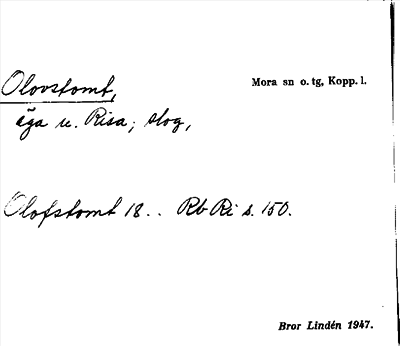 Olovstomt,
Mora sn o. tg, Kopp. l.
äga u. Risa; slog,
Olofstomt 18.. Rb Ri s. 150.
Bror Lindén 1947.